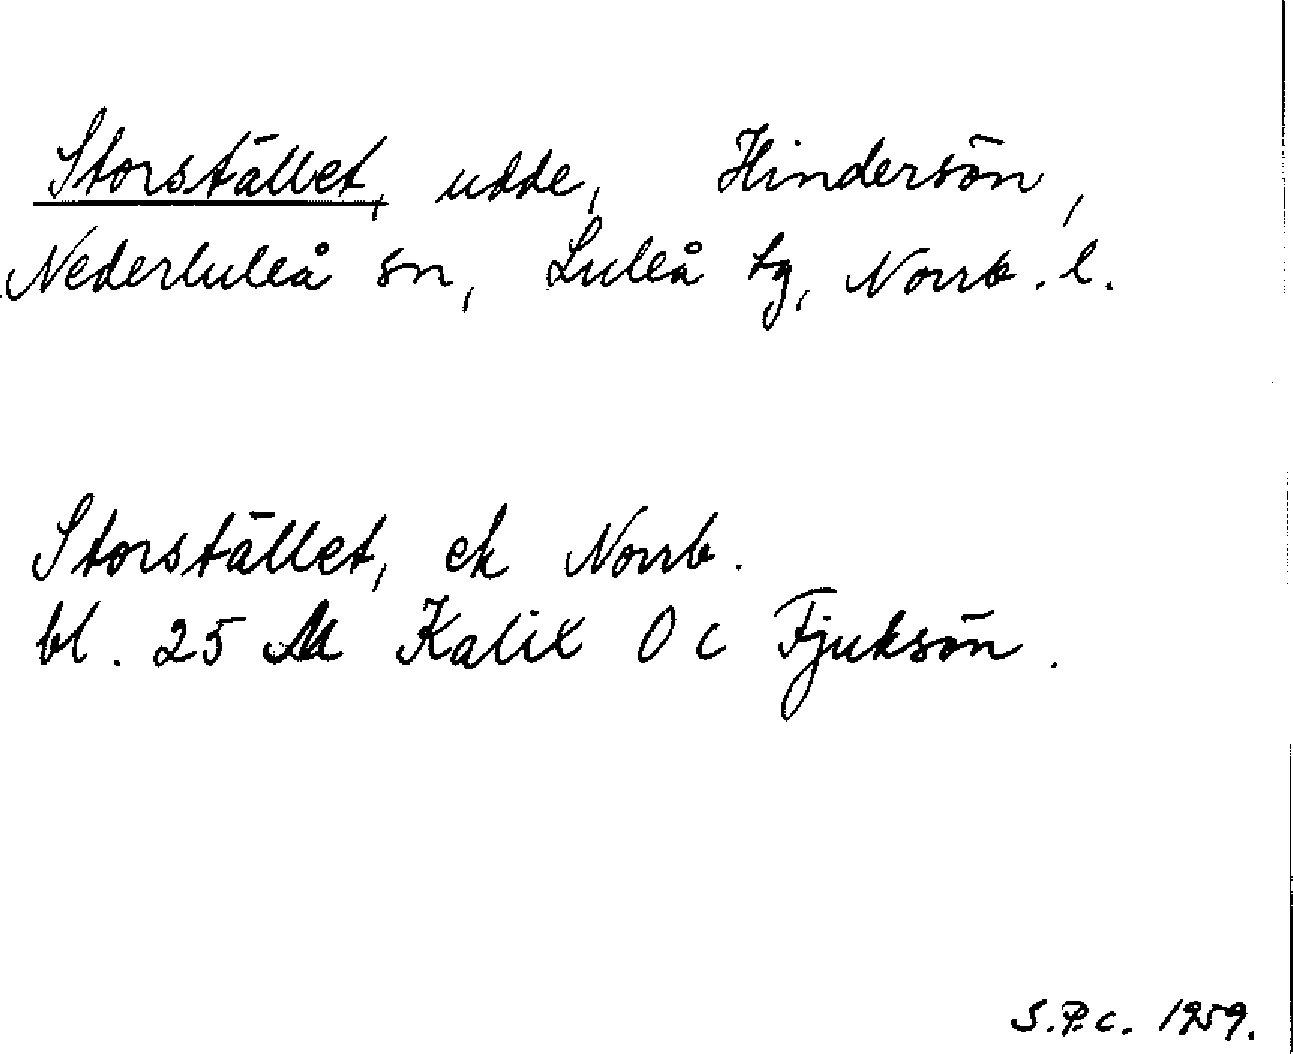 Storstället, udde, Hindersön,
Nederluleå sn, Luleå tg, Norrb. l.
Storstället, ek Norrb.
bl. 25 M Kalix 0 c Fjuksön.
S.P.C. 1959.